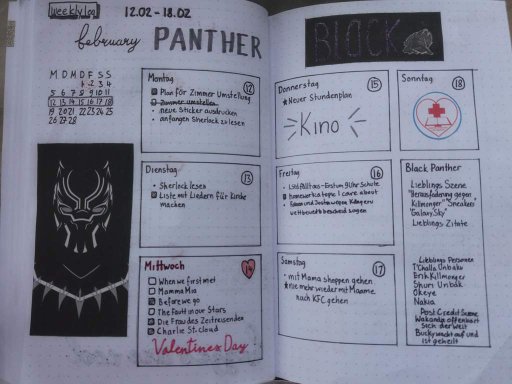 weekly log
12.02 - 18.02
february PANTHER
M D M D F S S
1 2 3 4
5 6 7 8 9 10 11
12 13 14 15 16 17 18
19 20 21 22 23 24 25
26 27 28
Montag 12
Plan für Zimmer Umstellung
Zimmer umstellen
neue Sticker ausdrucken
anfangen Sherlock zu lesen
Dienstag 13
Sherlock lesen
Liste mit Liedern für Kirche
machen
Mittwoch 14
When we first met
Mamma Mia
Before we go
The Fault in our Stars
Die Frau des Zeitreisenden
Charlie St. Cloud
Valentines Day
BLACK
Donnerstag 15
Neuer Stundenplan
Kino
Freitag 16
1. Std fällt aus - Erst um 9 Uhr Schule
homewerks topic I care about
wegen Känguru
wettbewerb bescheid sagen
Samstag 17
mit Mama shoppen gehen
nie mehr wieder mit Mamme
nach KFC gehen
Sonntag 18
Black Panther
Lieblings Szene
"Herausforderung gegen
Killmonger"
"Galaxy Sky"
Lieblings Zitate
Lieblings Personen
T'Challa Unbaku
Erik Killmonger
Shuri Unbak
Okeye
Nakia
Post Credit Scene
Wakanda offenbart
sich der Welt
Bucky wacht auf und
ist geheilt